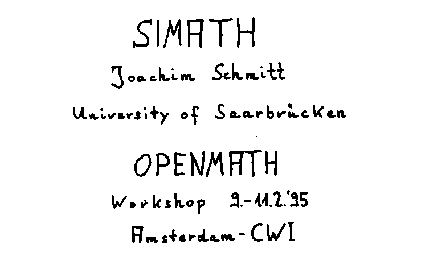 SIMATH
Joachim Schmitt
University of Saarbrücken
OPENMATH
Workshop 9.-11.2.'95
Amsterdam-CWI